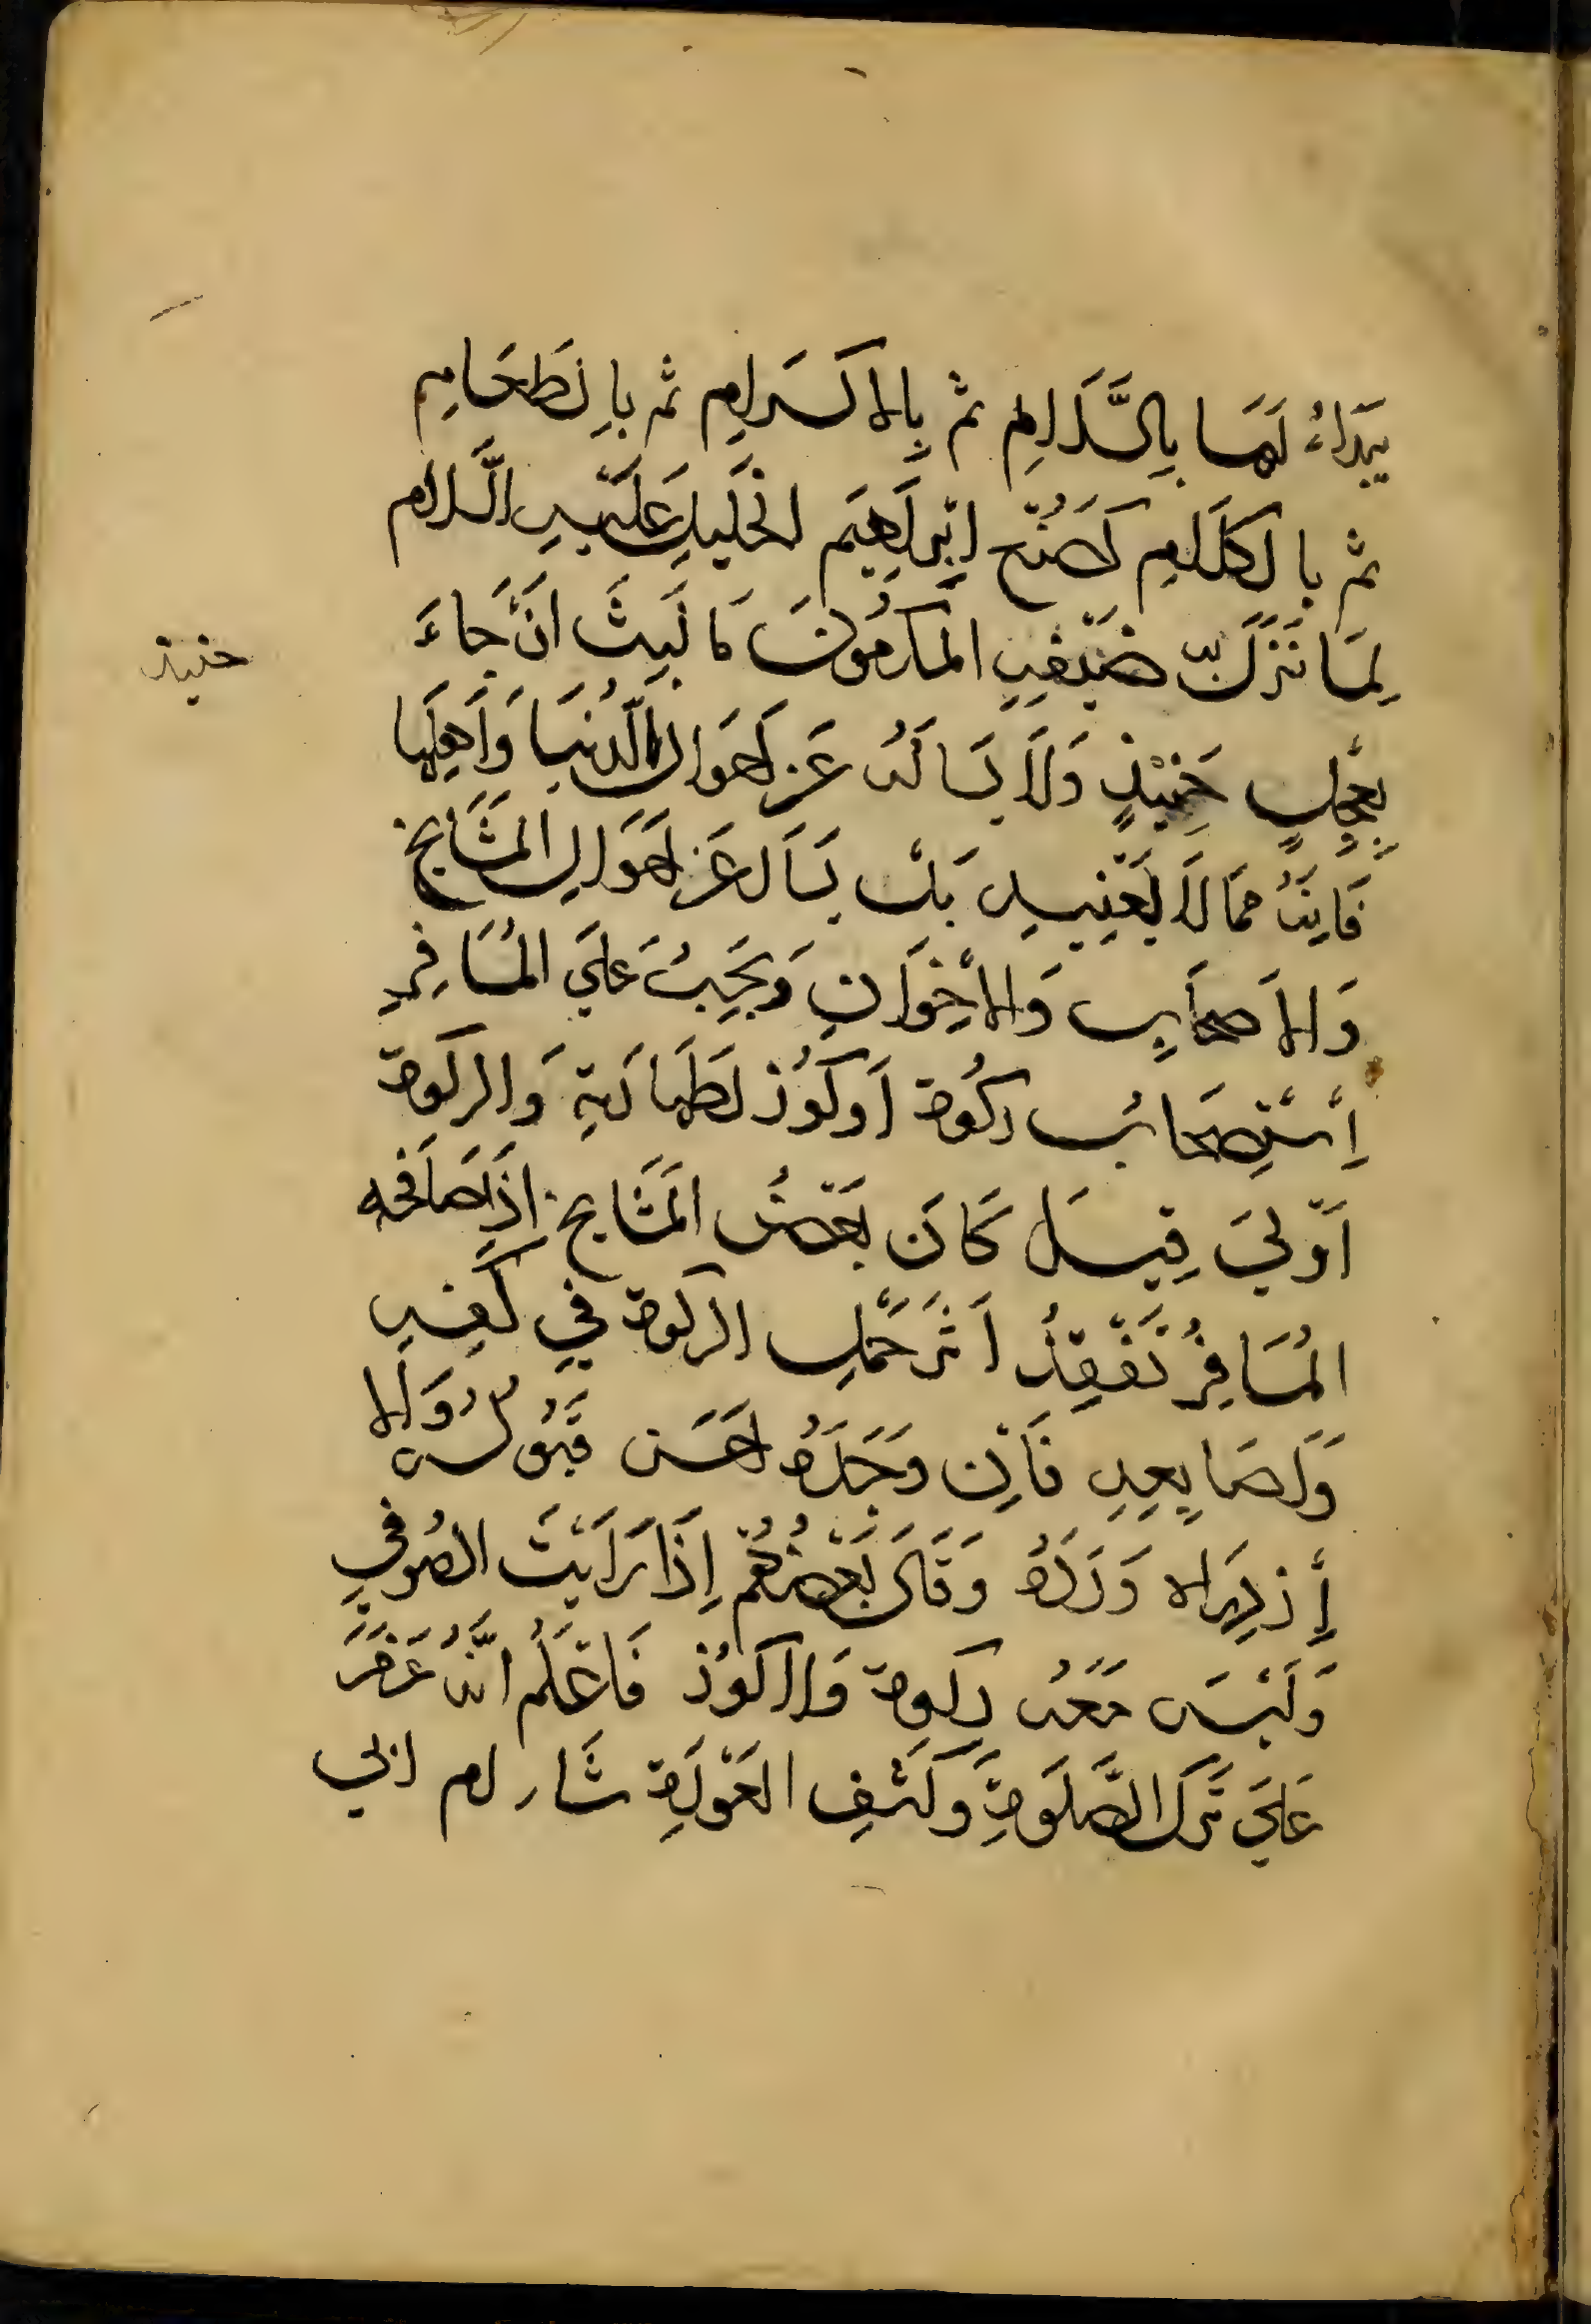 يبداءُ لهما بِالسَّلَامِ ثم بِالاكرامِ ثم باِلطَعَامِ
ثم بالكَلَامِ كَصُنْعِ اِبْرَاهِيَم الخَلَيلِ عَلَيْهِ السَّلام
لِمَا نَزَلَ بِّ ضَيْفِهِ المكرمُونَ مَا لَبِثَ اَنْ جاءَ
بِعِجْلٍ حَنِيْذٍ وَلَا يسَالهُ عَن اَحوَال الدُنيَا وَاَهلِهَا
فَاِنهُ ممَا لَا يَعْنِيهِ بَلْ يسَال عَن احوَالِ المَشَايخ
وَالاَصحَابِ وَالاْخِوَانِ وَيَجِبُ عَلَي المُسَافِرِ
اِسْتِصحَابُ ركُوة اَو كوُز لطَهَارَتِهِ وَالركوة
اَوْليَ قِيلَ كَانَ بَعْضُ المَشَايخ اِذَا صَافحه
المُسَافِرُ تَفَقَّدُ اَثَر حَمْلِ الركوة فِي كَفِهِ
وَاَصَابِعِهِ فَاِن وَجَدَهُ اَحسَن قَبُولهُ وَاِلا
اِزدِرَاه وَرَدَهُ وَقَالَ بَعْضهُمْ اِذَا رَايْتَ الصُوفي
وَلَيْسَ مَعَهُ ركوة وَلا كوُز فَاعْلَمْ انَّهُ عَزَمَ
عَلَي تَركَ الصَّلَوةِ وَكَشْفِ العَوْرَةِ شَاء ام ابي
حنيذ